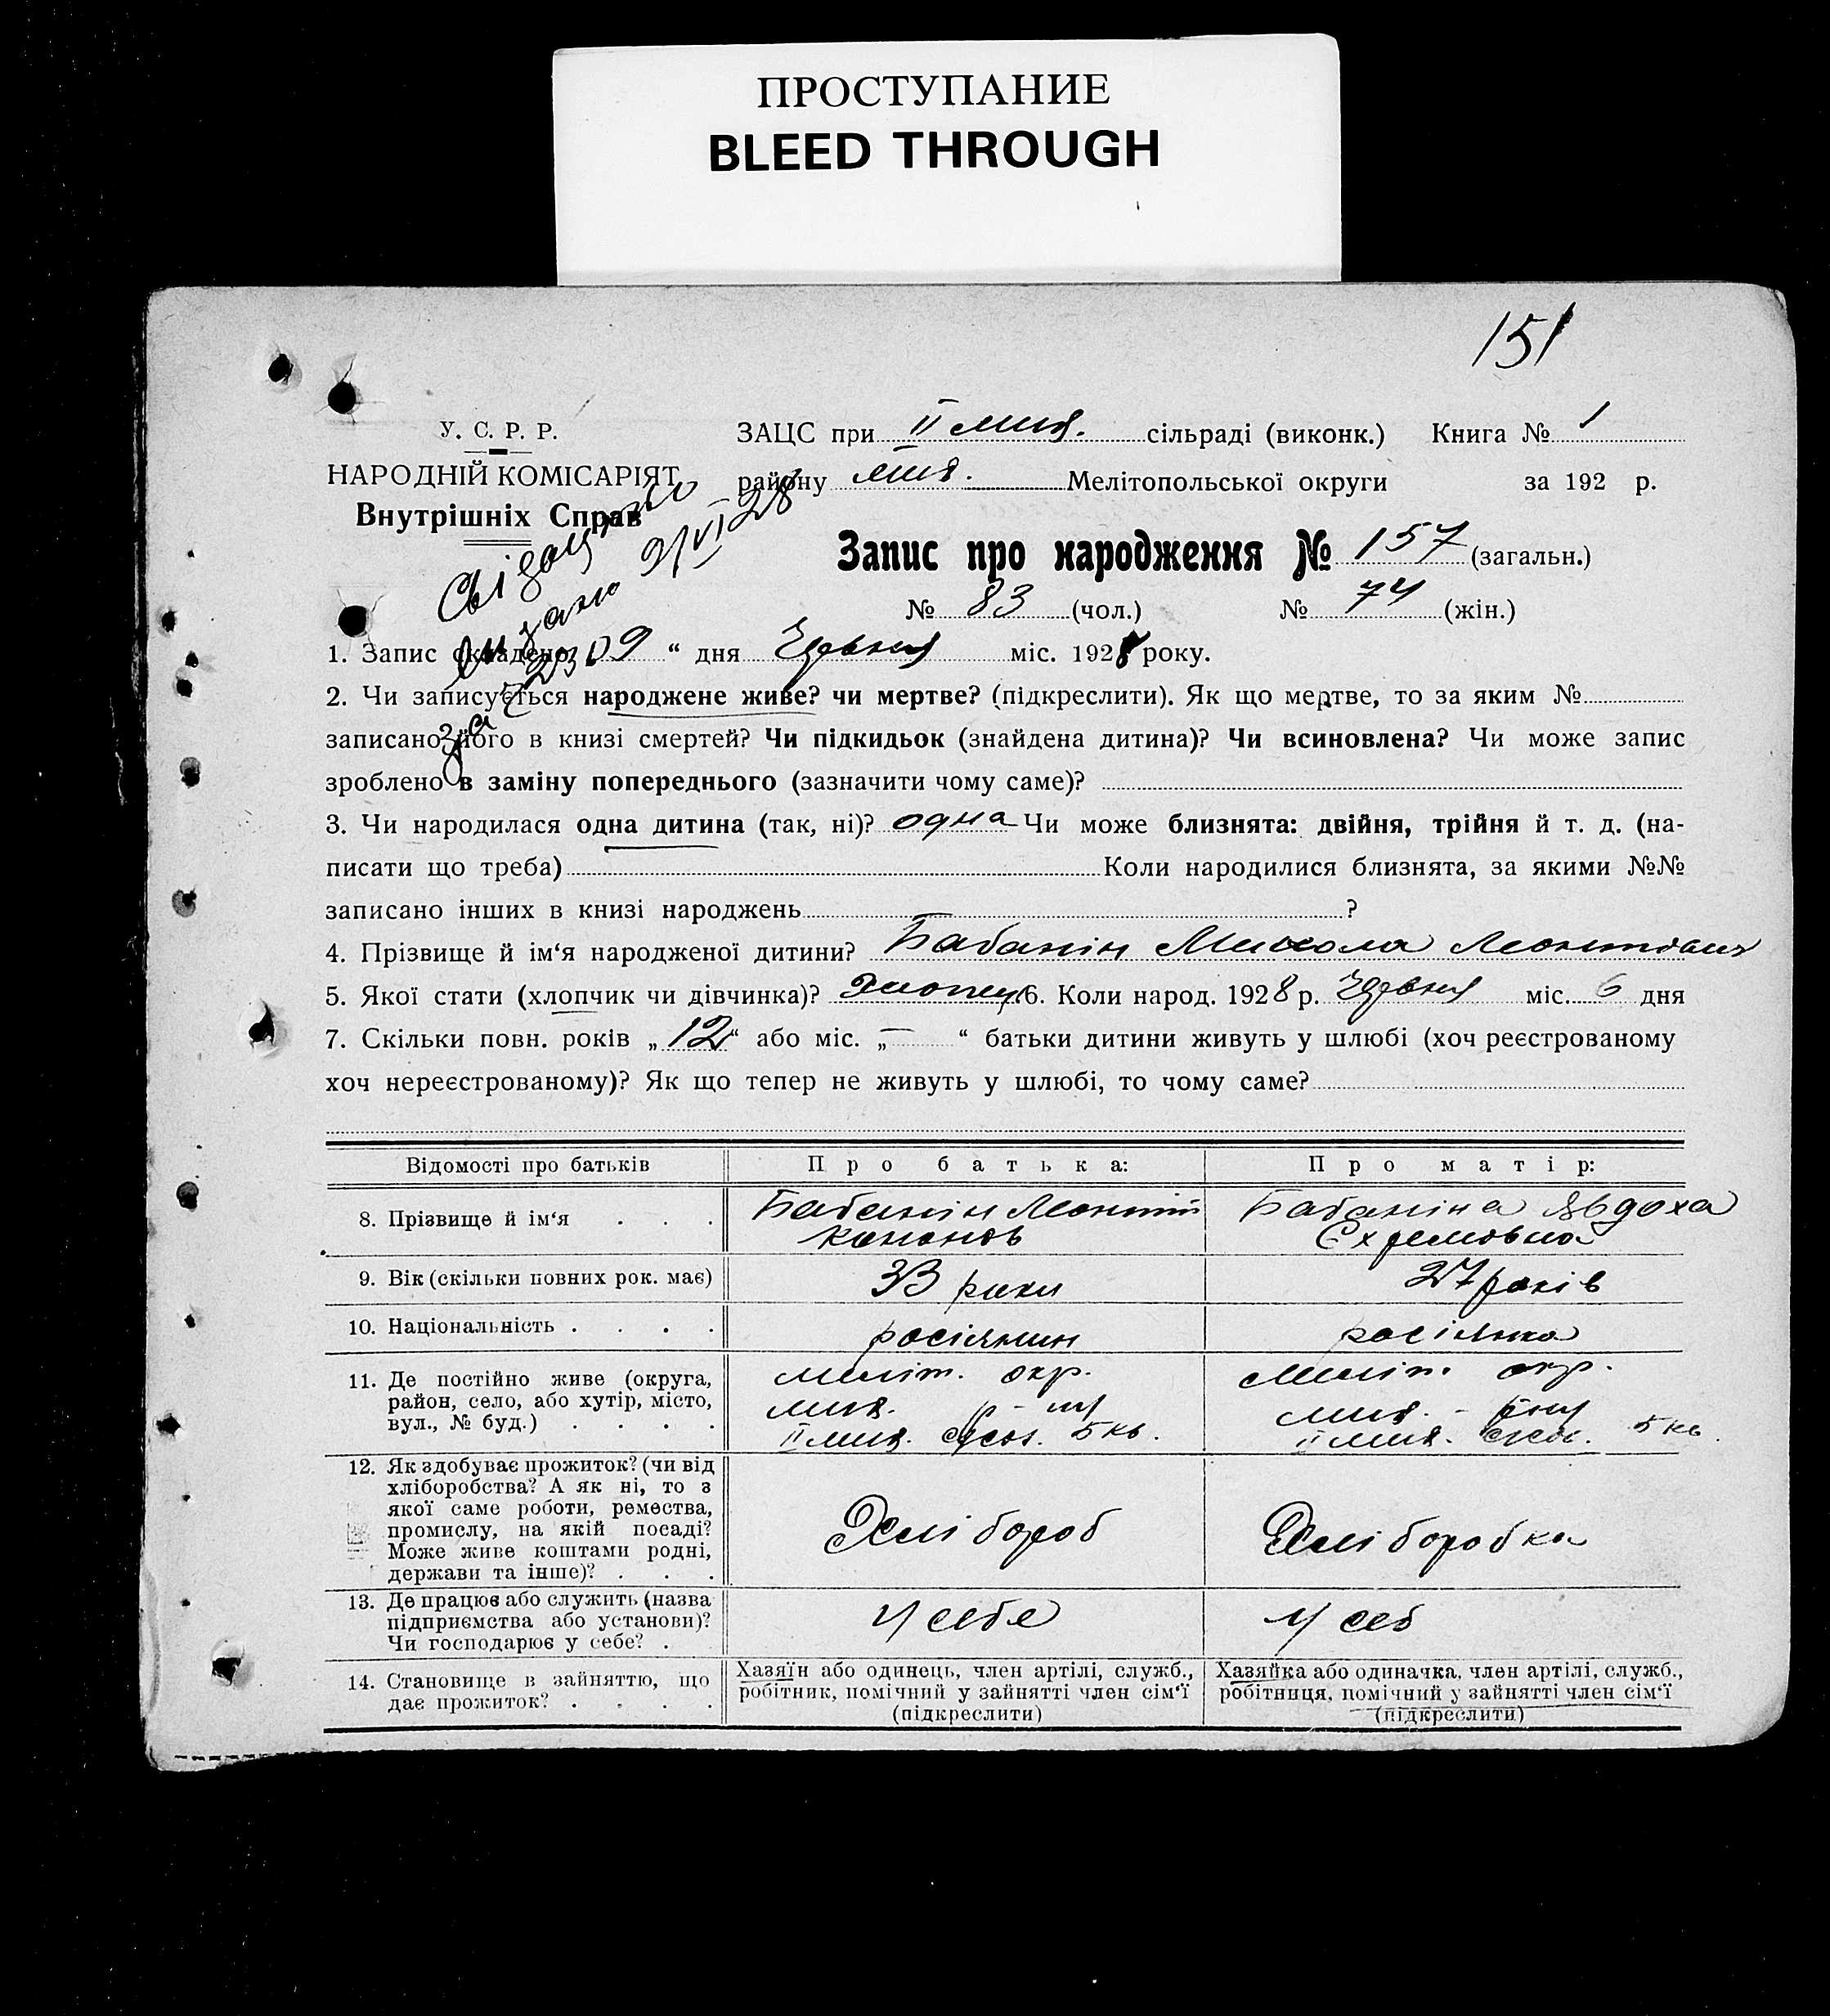 ПРОСТУПАНИЕ
BLEED THROUGH
151
У. С. Р. Р.
НАРОДНІЙ КОМІСАРІЯТ
Внутрішніх Справ
ЗАЦС при II мих. сільраді (виконк.) Книга № 1
району мих. Мелітопольської округи за 192 р.
Запис про народження № 157 (загальн.)
№ 83 (чол.) № 74 (жін.)
1. Запис складено 9 “ дня Червня міс. 1928 року.
2. Чи записується народжене живе? чи мертве? (підкреслити). Як що мертве, то за яким №
записано його в книзі смертей? Чи підкидьок (знайдена дитина)? Чи всиновлена? Чи може запис
зроблено в заміну попереднього (зазначити чому саме)?
3. Чи народилася одна дитина (так, ні)? одна Чи може близнята: двійня, трійня й т. д. (на-
писати що треба) Коли народилися близнята, за якими №№
записано інших в книзі народжень ?
4. Прізвище й ім‘я народженої дитини? Бабанін Микола Леонтієвич
5. Якої стати (хлопчик чи дівчинка)? 6. Коли народ. 1928 р. Червня міс. 6 дня
7. Скільки повн. років „ 12 “ або міс. „ — “ батьки дитини живуть у шлюбі (хоч реєстрованому
хоч нереєстрованому)? Як що тепер не живуть у шлюбі, то чому саме?
Відомості про батьків Про батька: Про матір:
8. Прізвище й ім‘я Бабанін Леонтій Кононов Бабаніна Явдоха Ехремовна
9. Вік (скільки повних рок. має) 33 роки 27 років
10. Національність росіянин росіянка
11. Де постійно живе (округа, район, село, або хутір, місто, вул., № буд.) Меліт. окр. мих. р-ну II мих. 5 кв. Меліт. окр. мих. - р-ну II мих. 5 кв.
12. Як здобуває прожиток? (чи від хліборобства? А як ні, то з якої саме роботи, ремества, промислу, на якій посаді? Може живе коштами родні, держави та інше)? Хлібороб Хліборобка
13. Де працює або служить (назва підприємства або установи)? Чи господарює у себе? У себе У себ
14. Становище в зайняттю, що дає прожиток? Хазяїн або одинець, член артілі, служб., робітник, помічний у зайнятті член сім‘ї (підкреслити) Хазяйка або одиначка, член артілі, служб., робітниця, помічний у зайнятті член сім‘ї (підкреслити)